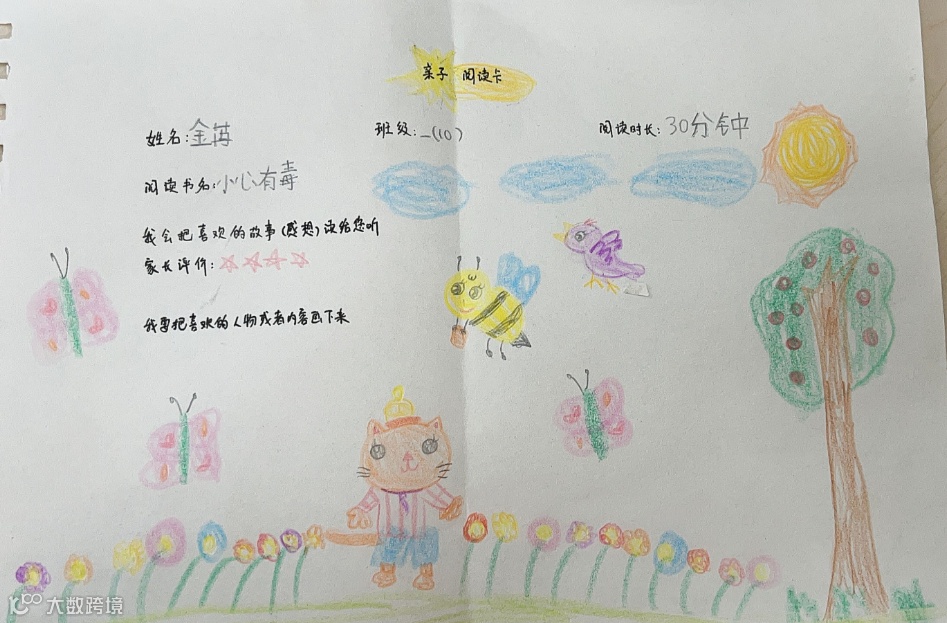 亲子 阅读卡
姓名:金苒 班级:一(10) 阅读时长:30分钟
阅读书名:小心有毒
我会把喜欢的故事(感想)读给您听
家长评价:☆☆☆☆
我要把喜欢的人物或者内容画下来
大数跨境